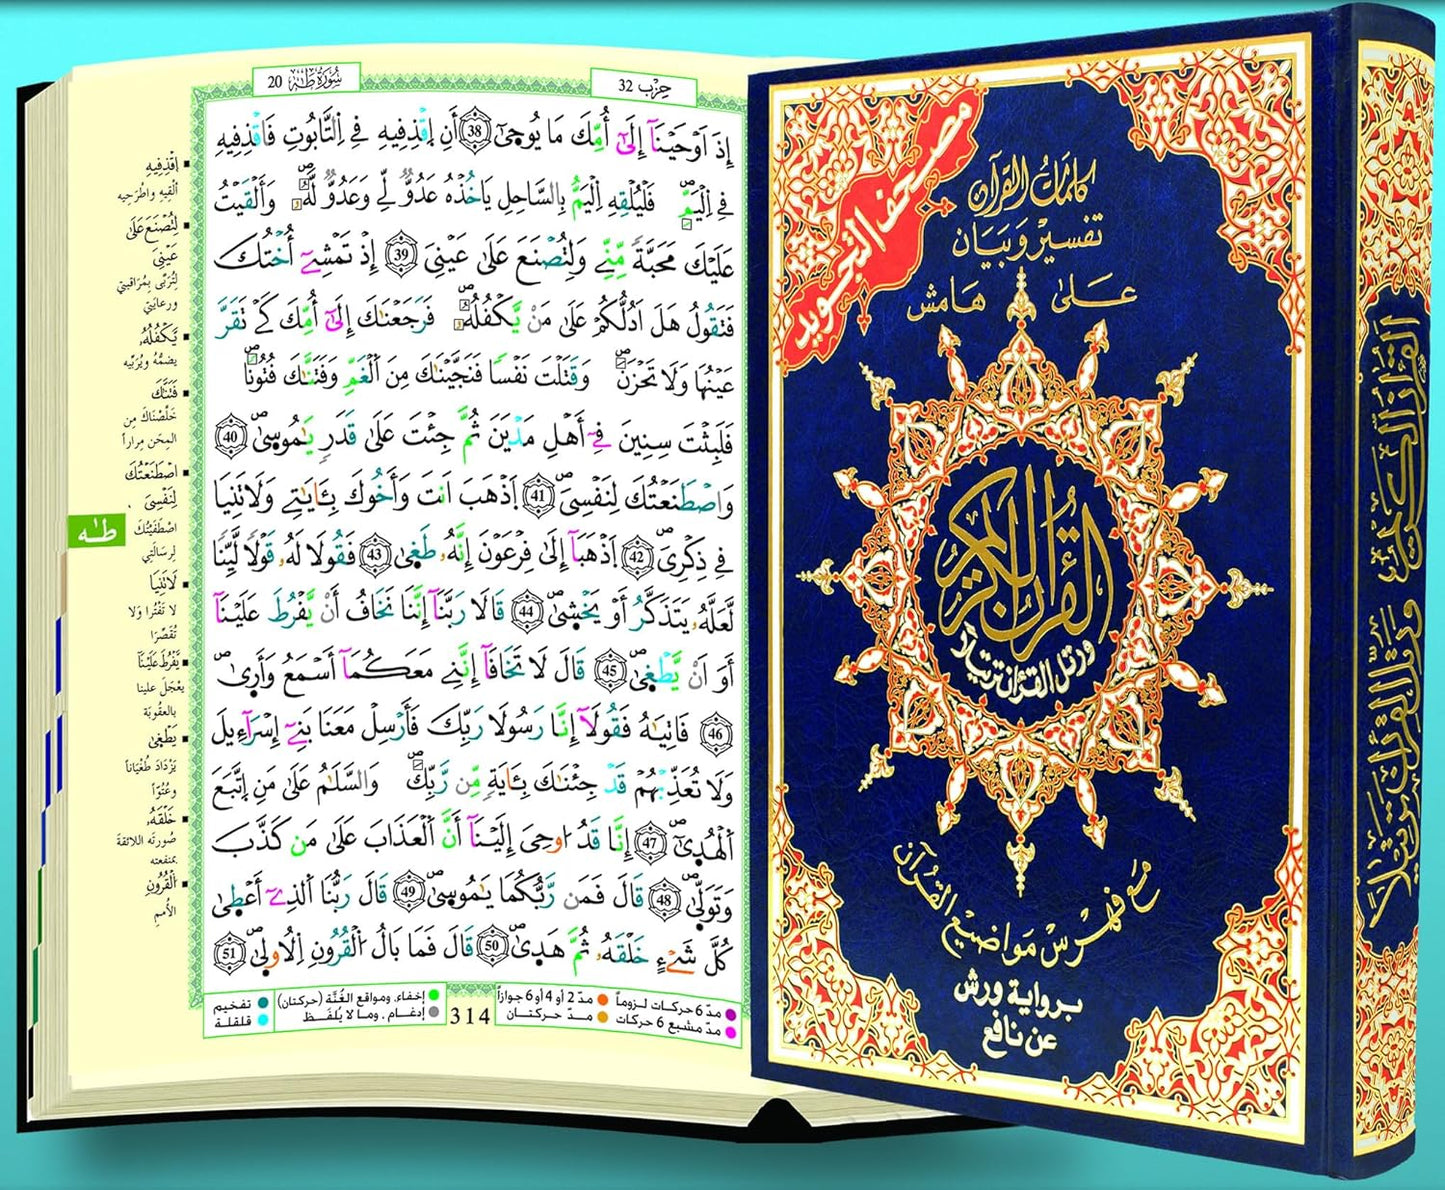 سُورَةُ طَهَ 20
حِزْب 32
إِذَ اَوْحَيْنَآ إِلَىٰٓ أُمِّكَ مَا يُوحَىٰٓ 38 أَنِ اِقْذِفِيهِ فِي اِلتَّابُوتِ فَاقْذِفِيهِ
فِي اِلْيَمِّ فَلْيُلْقِهِ اِلْيَمُّ بِالسَّاحِلِ يَاخُذْهُ عَدُوٌّ لِّي وَعَدُوٌّ لَّهُۥ وَأَلْقَيْتُ
عَلَيْكَ مَحَبَّةً مِّنِّے وَلِتُصْنَعَ عَلَىٰ عَيْنِيَ 39 إِذْ تَمْشِےٓ أُخْتُكَ
فَتَقُولُ هَلَ اَدُلُّكُمْ عَلَىٰ مَنْ يَّكْفُلُهُۥ فَرَجَعْنَٰكَ إِلَىٰٓ أُمِّكَ كَےْ تَقَرَّ
عَيْنُهَا وَلَا تَحْزَنَ وَقَتَلْتَ نَفْسًا فَنَجَّيْنَٰكَ مِنَ اَلْغَمِّ وَفَتَنَّٰكَ فُتُونًا
فَلَبِثْتَ سِنِينَ فِےٓ أَهْلِ مَدْيَنَ ثُمَّ جِئْتَ عَلَىٰ قَدَرٍ يَٰمُوسَىٰ 40
وَاصْطَنَعْتُكَ لِنَفْسِيَ 41 اَذْهَبَ اَنتَ وَأَخُوكَ بِـَٔايَٰتِے وَلَا تَنِيَا
فِي ذِكْرِيَ 42 اَذْهَبَآ إِلَىٰ فِرْعَوْنَ إِنَّهُۥ طَغَىٰ 43 فَقُولَا لَهُۥ قَوْلًا لَّيِّنًا
لَّعَلَّهُۥ يَتَذَكَّرُ أَوْ يَخْشَىٰ 44 قَالَا رَبَّنَآ إِنَّنَا نَخَافُ أَنْ يَّفْرُطَ عَلَيْنَآ
أَوَ اَنْ يَّطْغَىٰ 45 قَالَ لَا تَخَافَآ إِنَّنِے مَعَكُمَآ أَسْمَعُ وَأَرَىٰ
46 فَاتِيَٰهُ فَقُولَآ إِنَّا رَسُولَا رَبِّكَ فَأَرْسِلْ مَعَنَا بَنِےٓ إِسْرَآءِيلَ
وَلَا تُعَذِّبْهُمْ قَدْ جِئْنَٰكَ بِـَٔايَةٍ مِّن رَّبِّكَ وَالسَّلَٰمُ عَلَىٰ مَنِ اِتَّبَعَ
اَلْهُدَىٰٓ 47 إِنَّا قَدُ ا۟وحِيَ إِلَيْنَآ أَنَّ اَلْعَذَابَ عَلَىٰ مَن كَذَّبَ
وَتَوَلَّىٰ 48 قَالَ فَمَن رَّبُّكُمَا يَٰمُوسَىٰ 49 قَالَ رَبُّنَا اَلذِےٓ أَعْطَىٰ
كُلَّ شَےْءٍ خَلْقَهُۥ ثُمَّ هَدَىٰ 50 قَالَ فَمَا بَالُ اُلْقُرُونِ اِلُاولَىٰ 51
اِقْذِفِيهِ
أَلْقِيهِ واطْرَحِيهِ
لِتُصْنَعَ عَلَىٰ
عَيْنِيَ
لِتُرَبَّى بِمُرَاقَبَتي
ورعايَتي
يَّكْفُلُهُۥ
يضمُّهُ ويُرَبِّيه
فَتَنَّٰكَ
خَلَّصْنَاكَ مِن
المِحَنِ مِراراً
اصْطَنَعْتُكَ
لِنَفْسِيَ
اصْطَفَيْتُكَ
لِرِسَالَتِي
طَهَ
لَا تَنِيَا
لا تَفْتُرا وَلا
تُقَصِّرَا
يَّفْرُطَ عَلَيْنَآ
يَعْجَلَ علينا
بالعقُوبَة
يَطْغَىٰ
يَزْدَادَ طُغْيَاناً
وعُتُوّاً
خَلْقَهُۥ
صُورَتَه اللائقةَ
بمنفعته
اَلْقُرُونِ
الأُممِ
مدّ 6 حركات لزوماً مدّ 2 أو 4 أو 6 جوازاً
مدّ مشبع 6 حركات مدّ حركتان
314
إخفاء، ومواقع الغُنَّة (حركتان) تفخيم
إدغام، وما لا يُلفَظ قلقلة
مصحف التجويد
كلمات القرآن
تفسير وبيان
على هامش
القرآن الكريم
ورتل القرآن ترتيلاً
مع فهرس مواضيع القرآن
برواية ورش
عن نافع
القرآن الكريم ورتل القرآن ترتيلاً